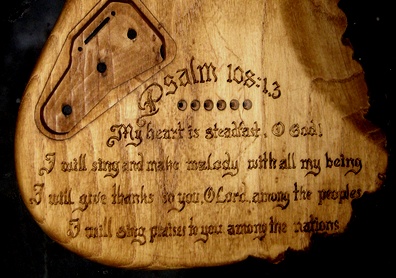 Psalm 108:1,3
My heart is steadfast, O God!
I will sing and make melody with all my being
I will give thanks to you, O Lord, among the peoples
I will sing praises to you among the nations